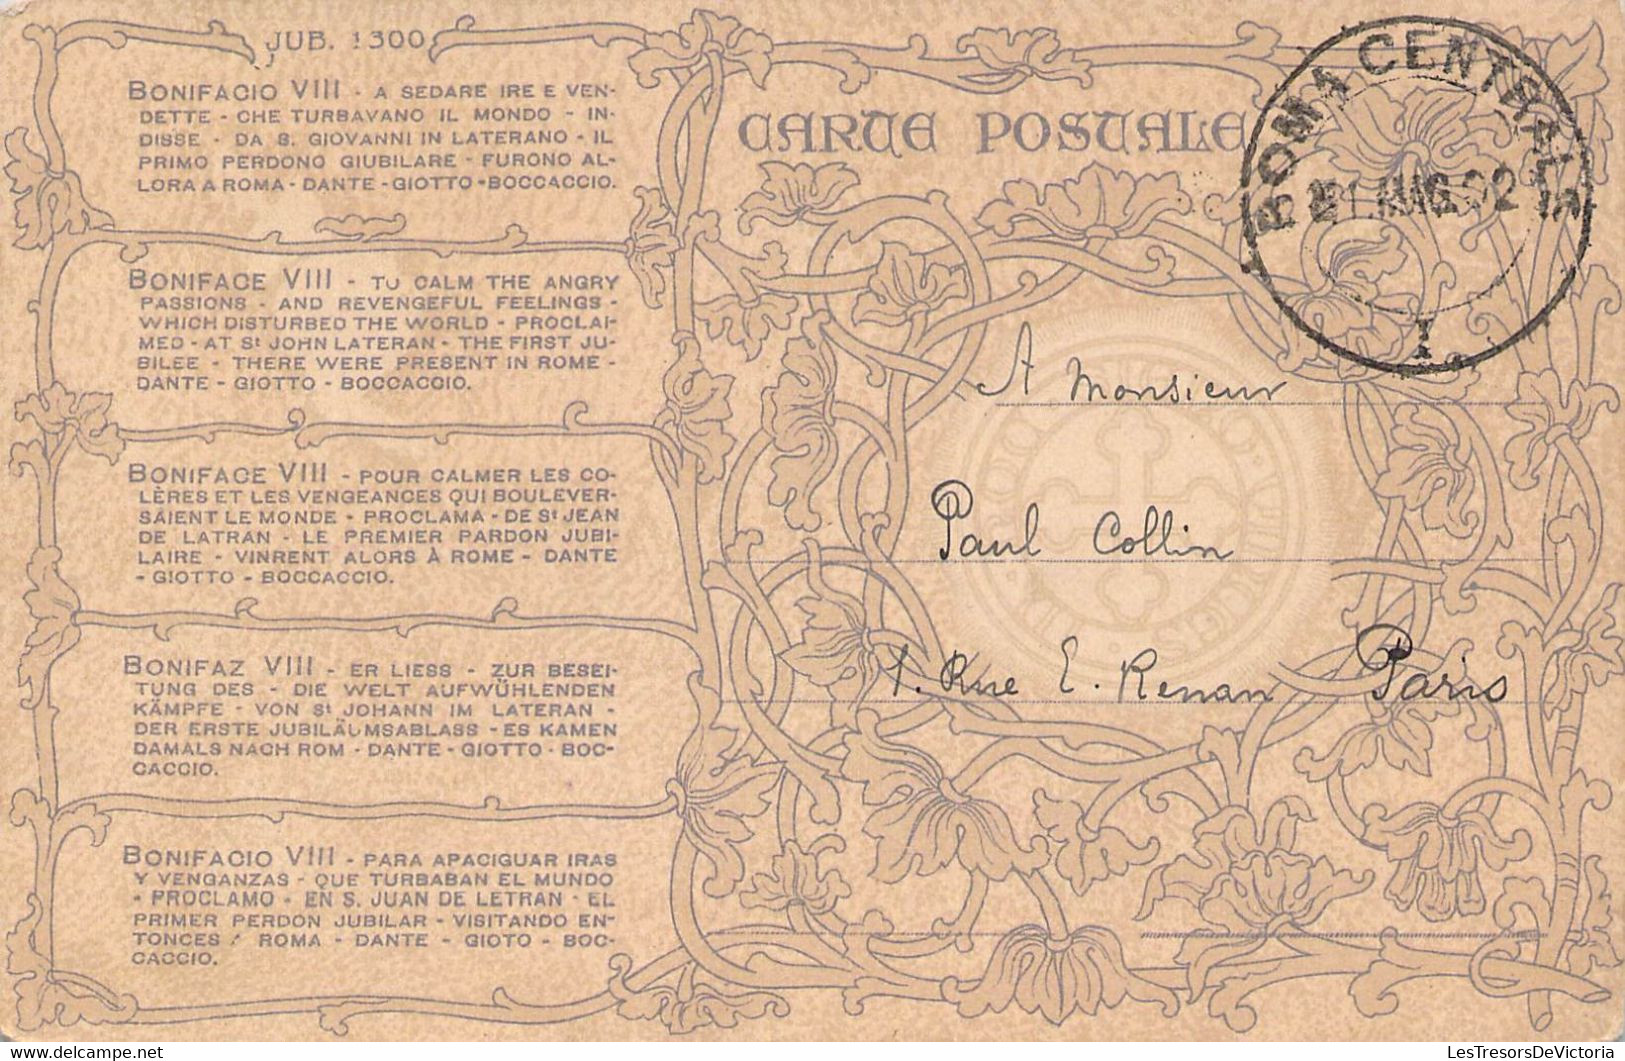 JUB. 1300
BONIFACIO VIII - A SEDARE IRE E VEN-
DETTE - CHE TURBAVANO IL MONDO - IN-
DISSE - DA S. GIOVANNI IN LATERANO - IL
PRIMO PERDONO GIUBILARE - FURONO AL-
LORA A ROMA - DANTE - GIOTTO - BOCCACCIO.
BONIFACE VIII - TO CALM THE ANGRY
PASSIONS - AND REVENGEFUL FEELINGS -
WHICH DISTURBED THE WORLD - PROCLAI-
MED - AT St JOHN LATERAN - THE FIRST JU-
BILEE - THERE WERE PRESENT IN ROME -
DANTE - GIOTTO - BOCCACCIO.
BONIFACE VIII - POUR CALMER LES CO-
LÈRES ET LES VENGEANCES QUI BOULEVER-
SAIENT LE MONDE - PROCLAMA - DE St JEAN
DE LATRAN - LE PREMIER PARDON JUBI-
LAIRE - VINRENT ALORS À ROME - DANTE
- GIOTTO - BOCCACCIO.
BONIFAZ VIII - ER LIESS - ZUR BESEI-
TUNG DES - DIE WELT AUFWÜHLENDEN
KÄMPFE - VON St JOHANN IM LATERAN -
DER ERSTE JUBILÄUMSABLASS - ES KAMEN
DAMALS NACH ROM - DANTE - GIOTTO - BOC-
CACCIO.
BONIFACIO VIII - PARA APACIGUAR IRAS
Y VENGANZAS - QUE TURBABAN EL MUNDO
- PROCLAMO - EN S. JUAN DE LETRAN - EL
PRIMER PERDON JUBILAR - VISITANDO EN-
TONCES : ROMA - DANTE - GIOTO - BOC-
CACCIO.
CARTE POSTALE
ROMA CENTRALE
21 AUG. 02
A Monsieur
Paul Collin
1. Rue E. Renan Paris
LesTresorsDeVictoria